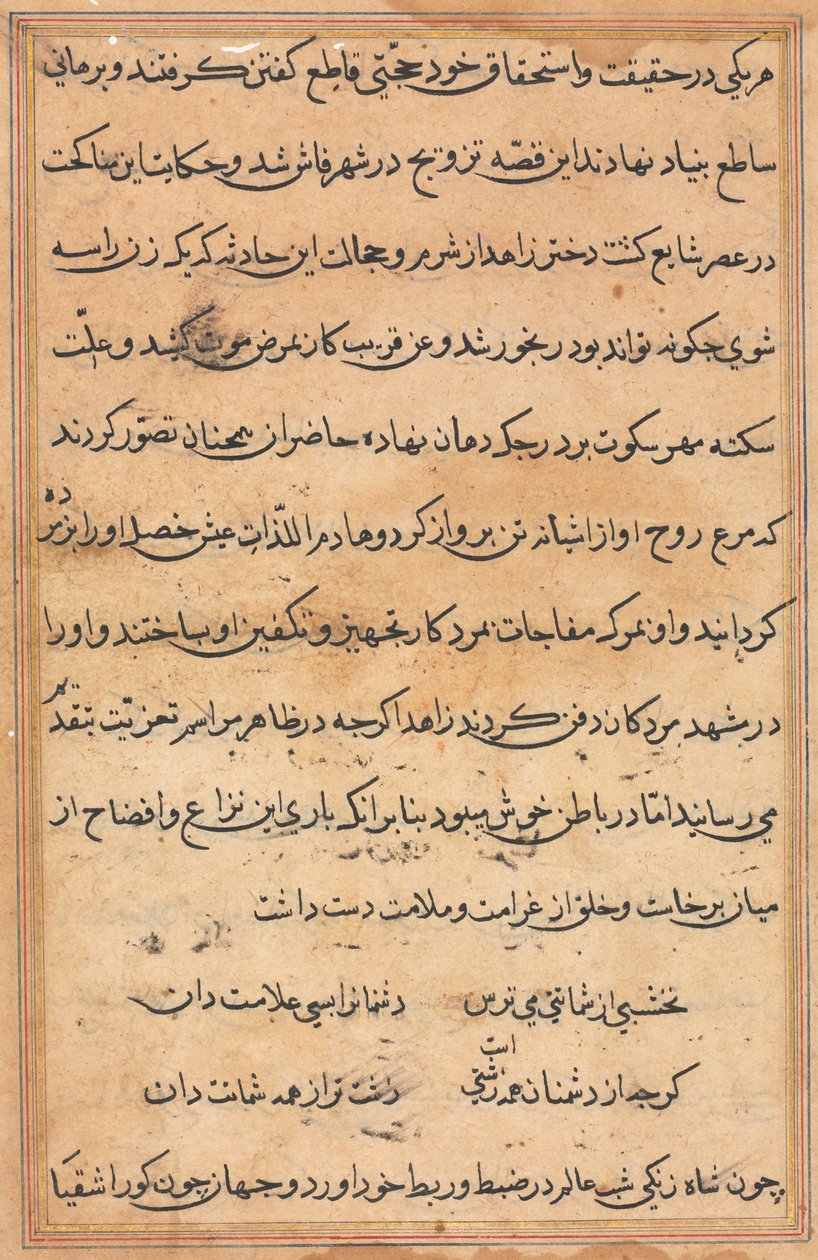 هریکی در حقیقت و استحقاق خود حجّتی قاطع کفتن کرفتند و برهانی
ساطع بنیاد نهادند این قصّه تزویج در شهر فاش شد و حکایت این مناکحت
در عصر شایع کشت دختر زاهد از شرم و خجالت این حادثه که یک زن را سه
شوی جکونه تواند بود رنجور شد و عن قریب کار بمرض موت کشید و علّت
سکته مهر سکوت بر درجک دهان نهاده حاضران همجنان تصوّر کردند
که مرغ روح او از اشیانه تن برواز کرد و هادم اللذّات عیش خصل او را بزمرده
کردانید و او بمرک مفاجات بمرد کار تجهیز و تکفین او بساختند و او را
در مشهد مردکان دفن کردند زاهد اکرجه در ظاهر مراسم تعزیّت بتقدیم
می رسانید امّا در باطن خوش میبود بنابر انک باری این نزاع و افضاح از
میان برخاست و خلق از غرامت و ملامت دست داشت
نخشبی از شماتتی می ترس دشمنانرا بسی علامت دان
کرجه از دشمنان همه زشتی است زشت تر از همه شماتت دان
چون شاه زنکی شب عالم در ضبط و ربط خود اورد و جهان چون کور اشقیا